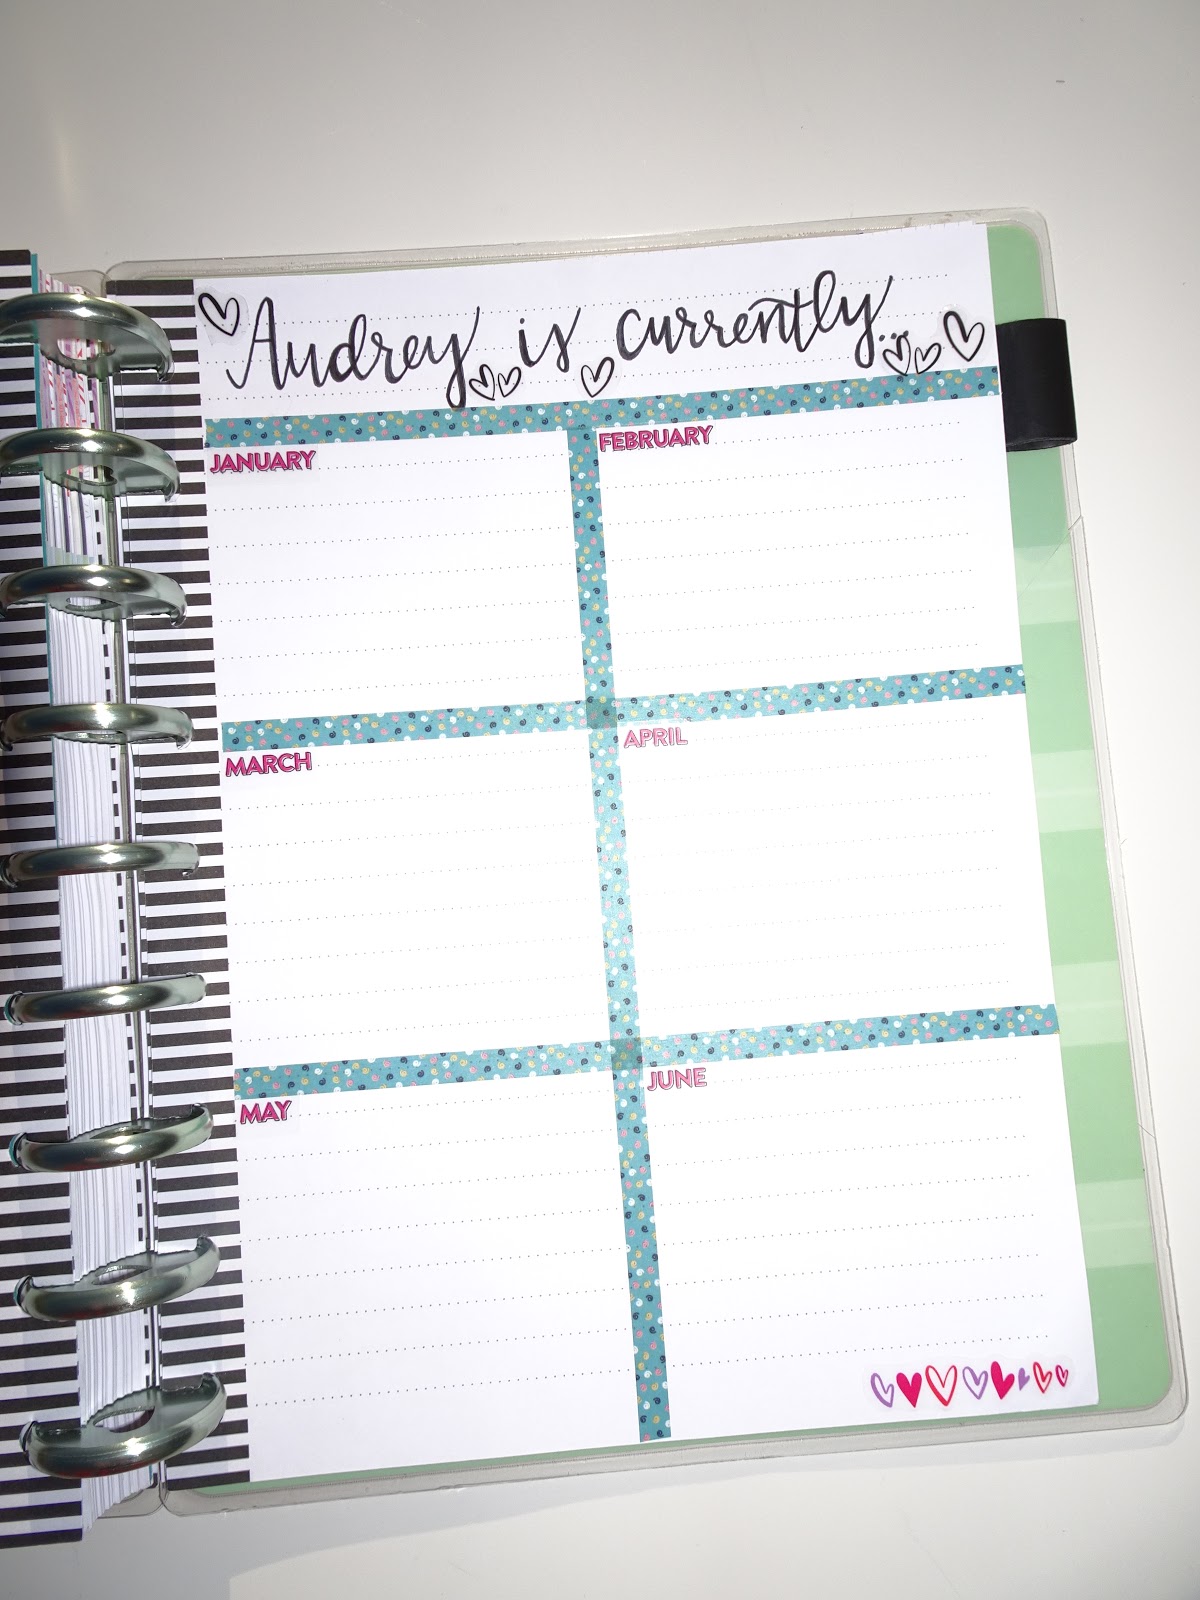 Audrey is currently...
JANUARY
FEBRUARY
MARCH
APRIL
MAY
JUNE